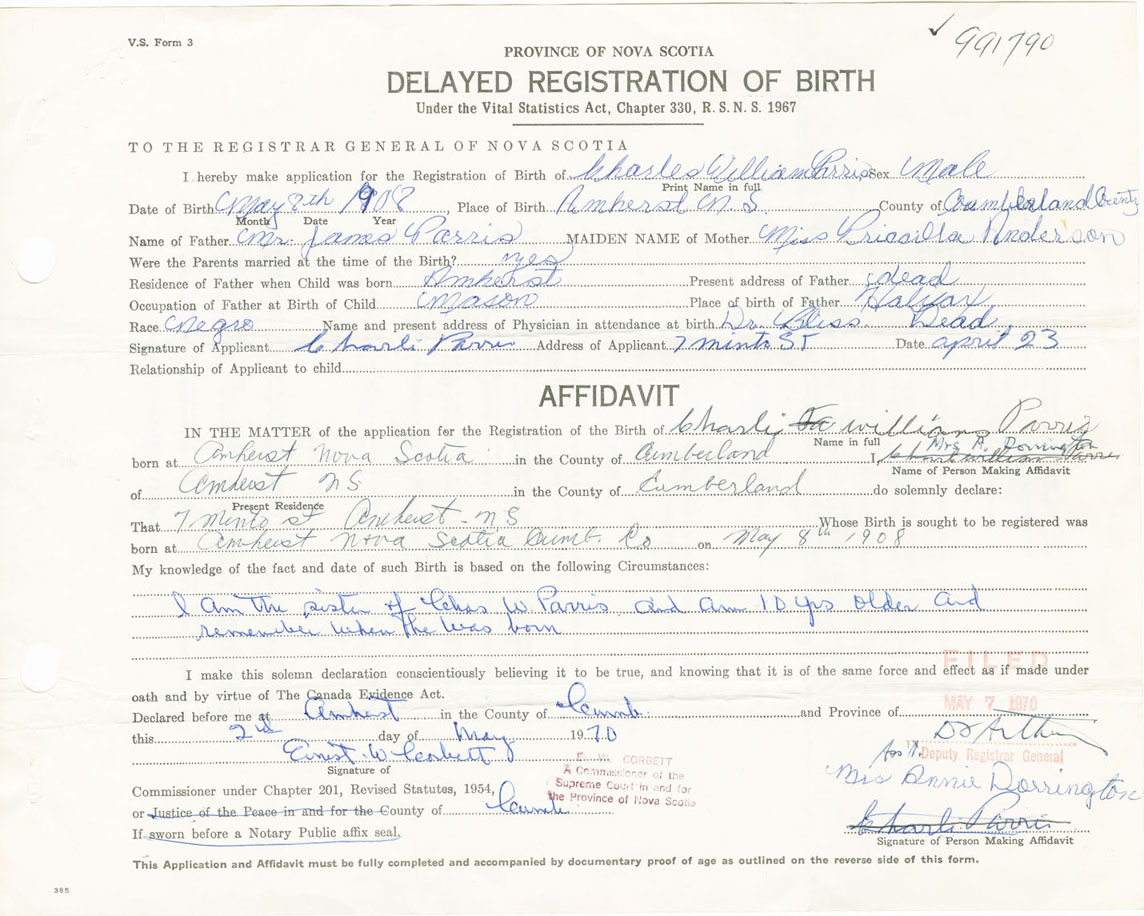 V.S. Form 3
✓ 991790
PROVINCE OF NOVA SCOTIA
DELAYED REGISTRATION OF BIRTH
Under the Vital Statistics Act, Chapter 330, R.S.N.S. 1967
TO THE REGISTRAR GENERAL OF NOVA SCOTIA
I hereby make application for the Registration of Birth of Charles William Parris Sex Male
Print Name in full
Date of Birth May 8th 1908, Place of Birth Amherst N.S. County of Cumberland County
Month Date Year
Name of Father Mr. James Parris MAIDEN NAME of Mother Miss Priscilla Anderson
Were the Parents married at the time of the Birth? yes
Residence of Father when Child was born Amherst Present address of Father dead
Occupation of Father at Birth of Child Mason Place of birth of Father Halifax
Race Negro Name and present address of Physician in attendance at birth Dr. Bliss. Dead
Signature of Applicant Charli Parris Address of Applicant 7 minto St Date april 23
Relationship of Applicant to child
AFFIDAVIT
IN THE MATTER of the application for the Registration of the Birth of Charli william Parris
Name in full
born at Amherst Nova Scotia in the County of Cumberland I, Mrs A. Dorrington
Name of Person Making Affidavit
of Amherst NS in the County of Cumberland do solemnly declare:
Present Residence
That 7 minto st Amherst - NS Whose Birth is sought to be registered was
born at Amherst Nova Scotia Cumb. Co on May 8th 1908
My knowledge of the fact and date of such Birth is based on the following Circumstances:
I am the sister of Chas W. Parris and am 10 yrs older and
remember when he was born
I make this solemn declaration conscientiously believing it to be true, and knowing that it is of the same force and effect as if made under
oath and by virtue of The Canada Evidence Act.
FILED
Declared before me at Amherst in the County of Cumb. and Province of
MAY 7 1970
this 2nd day of May 1970
Ernest W Corbett
Signature of
Ass't. Deputy Registrar General
E. W. CORBETT
A Commissioner of the
Supreme Court in and for
the Province of Nova Scotia
Mrs Annie Dorrington
Commissioner under Chapter 201, Revised Statutes, 1954,
or Justice of the Peace in and for the County of Cumb
Charli Parris
If sworn before a Notary Public affix seal.
Signature of Person Making Affidavit
This Application and Affidavit must be fully completed and accompanied by documentary proof of age as outlined on the reverse side of this form.
385